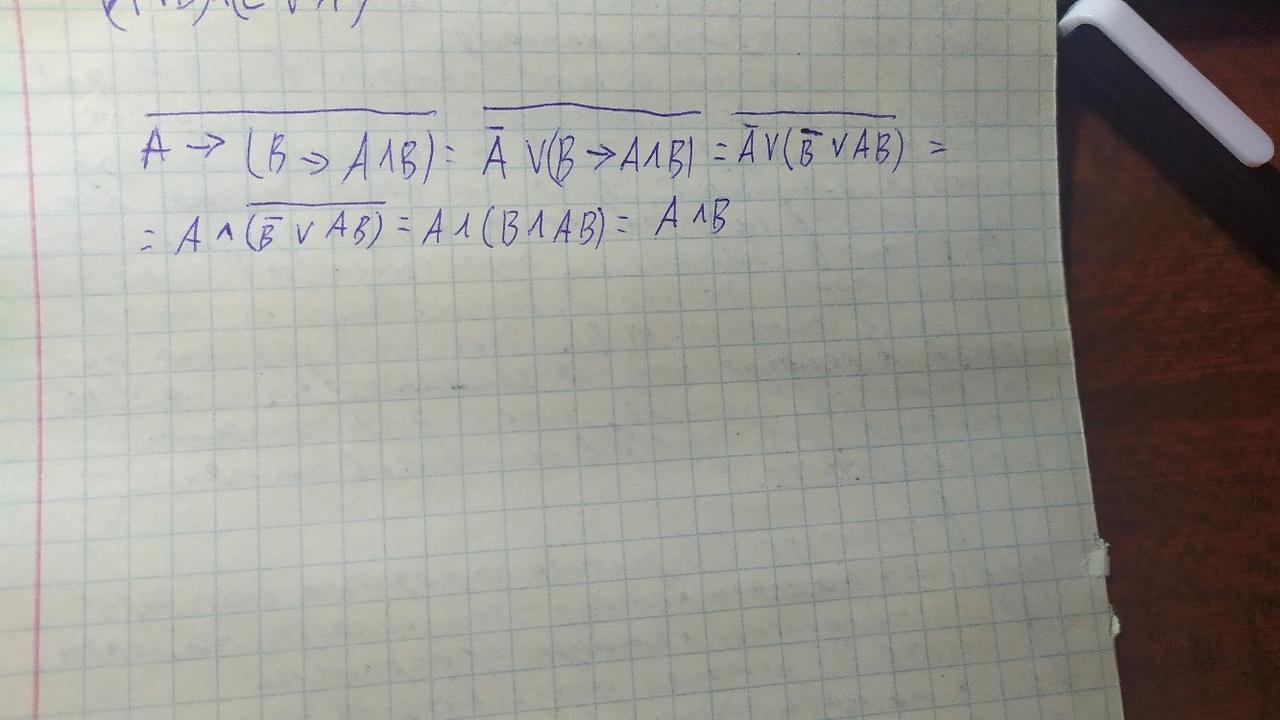 A̅ ̅→̅ ̅(̅B̅ ̅→̅ ̅A̅∧̅B̅)̅ = A̅ ∨ (B → A∧B) = A̅ ∨ (B̅ ∨ AB) =
= A ∧ (B̅ ∨ AB) = A ∧ (B ∧ AB) = A ∧ B